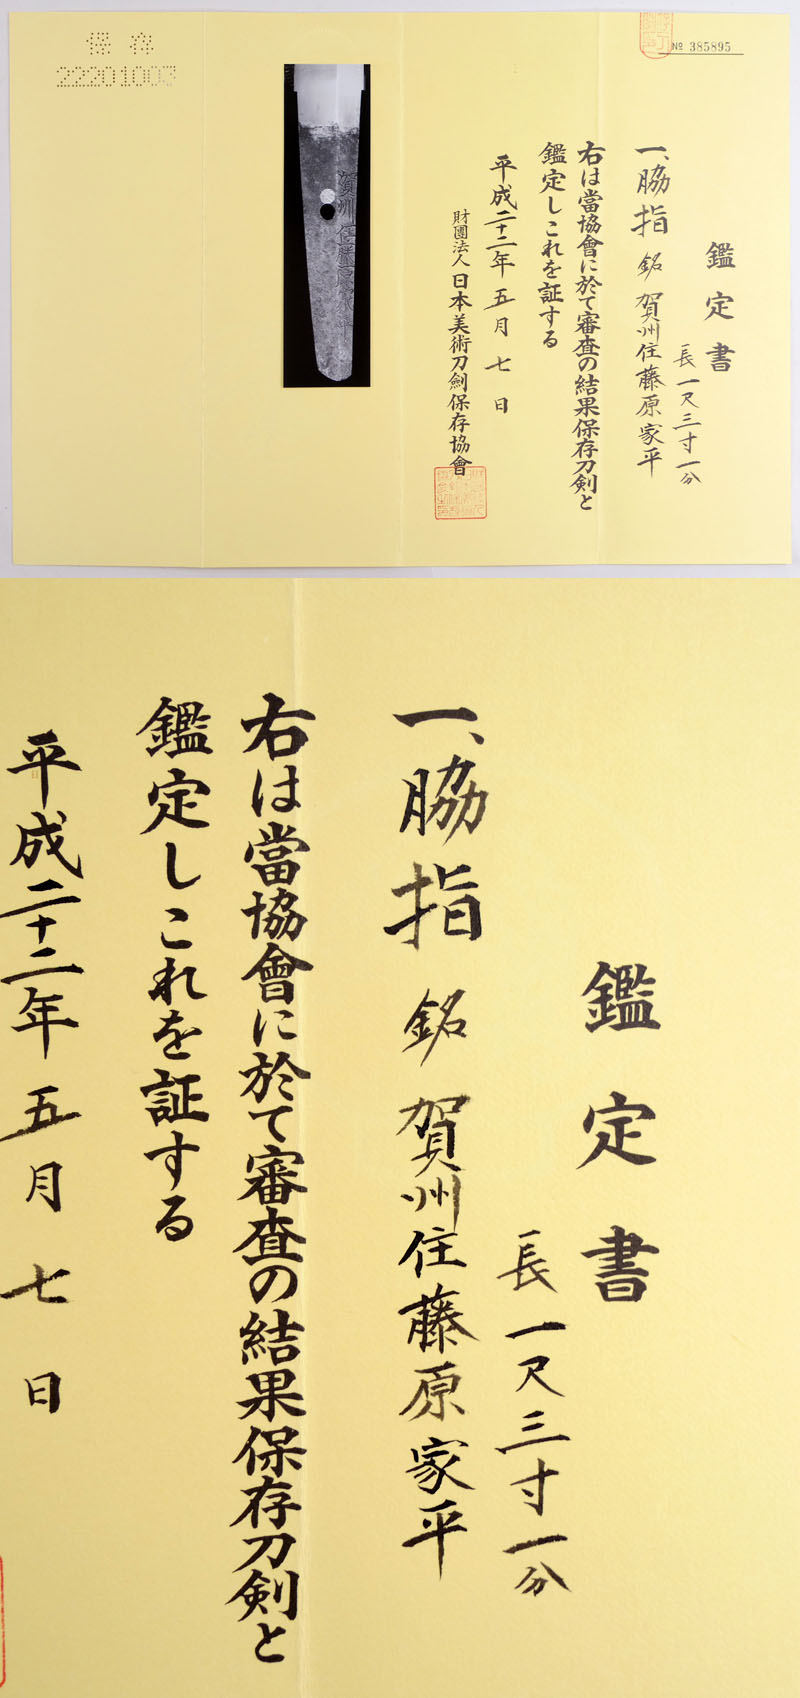 保存
22201003
№ 385895
鑑定書
長一尺三寸一分
一、脇指 銘 賀州住藤原家平
右は當協會に於て審査の結果保存刀剣と
鑑定しこれを証する
平成二十二年五月七日
財團法人日本美術刀劍保存協會
賀州住藤原家平
鑑定書
長一尺三寸一分
一、脇指 銘 賀州住藤原家平
右は當協會に於て審査の結果保存刀剣と
鑑定しこれを証する
平成二十二年五月七日